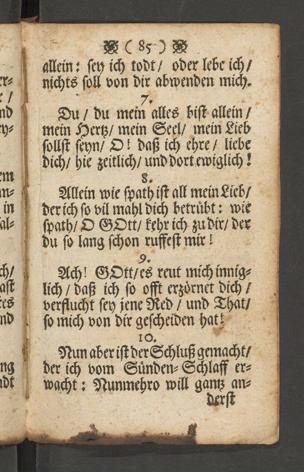 ( 85 )
allein: sey ich todt/ oder lebe ich/
nichts soll von dir abwenden mich.
7.
Du/ du mein alles bist allein/
mein Hertz/ mein Seel/ mein Lieb
sollst seyn/ O! daß ich ehre/ liebe
dich/ hie zeitlich/ und dort ewiglich!
8.
Allein wie spath ist all mein Lieb/
der ich so vil mahl dich betrübt: wie
spath/ O GOtt/ kehr ich zu dir/ der
du so lang schon ruffest mir!
9.
Ach! GOtt/ es reut mich innig-
lich/ daß ich so offt erzörnet dich/
verflucht sey jene Red/ und That/
so mich von dir gescheiden hat!
10.
Nun aber ist der Schluß gemacht/
der ich vom Sünden-Schlaff er-
wacht: Nunmehro will gantz an-
derst